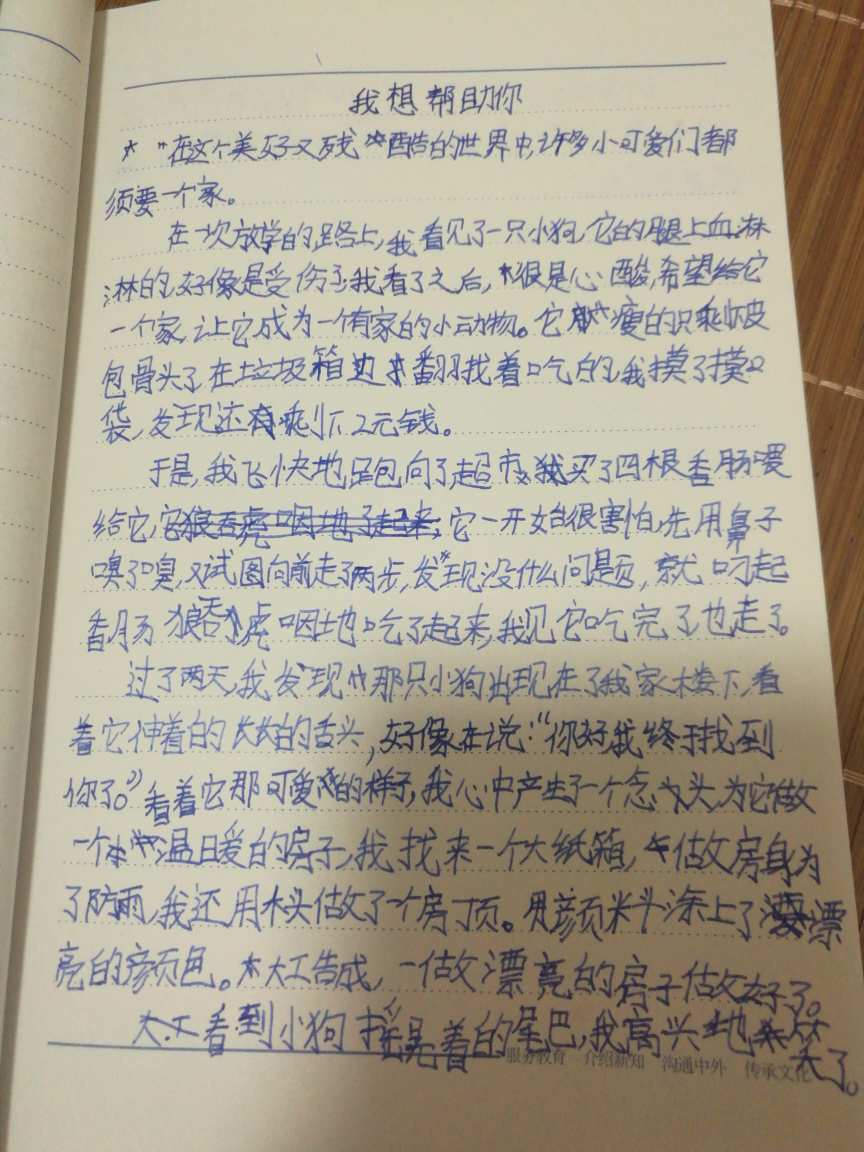 我想帮助你
"在这个美好又残酷的世界中,许多小可爱们都
须要一个家。
在一次放学的路上,我看见了一只小狗,它的腿上血淋
淋的,好像是受伤了,我看了之后,很是心酸,希望给它
一个家,让它成为一个有家的小动物。它瘦的只剩皮
包骨头了在垃圾箱边翻找着吃的,我摸了摸口
袋,发现还有剩下2元钱。
于是,我飞快地跑向了超市,我买了四根香肠喂
给它,它一开始很害怕,先用鼻子
嗅了嗅,又试图向前走了两步,发现没什么问题,就叼起
香肠狼吞虎咽地吃了起来,我见它吃完了也走了。
过了两天,我发现那只小狗出现在了我家楼下,看
着它伸着的长长的舌头,好像在说:"你好,我终于找到
你了。"看着它那可爱的样子,我心中产生了一个念头,为它做
一个温暖的房子,我找来一个大纸箱,做房身为
了防雨,我还用木头做了一个房丁顶。用颜料涂上了漂
亮的颜色。大工告成,一做漂亮的房子做好了。
看到小狗摇晃着的尾巴,我高兴地笑了。
服务教育 介绍新知 沟通中外 传承文化